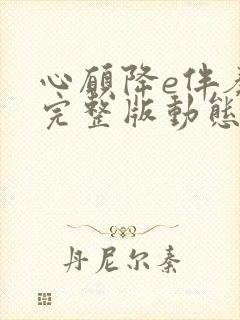 心願降e伴奏
完整版動態
丹尼尔秦